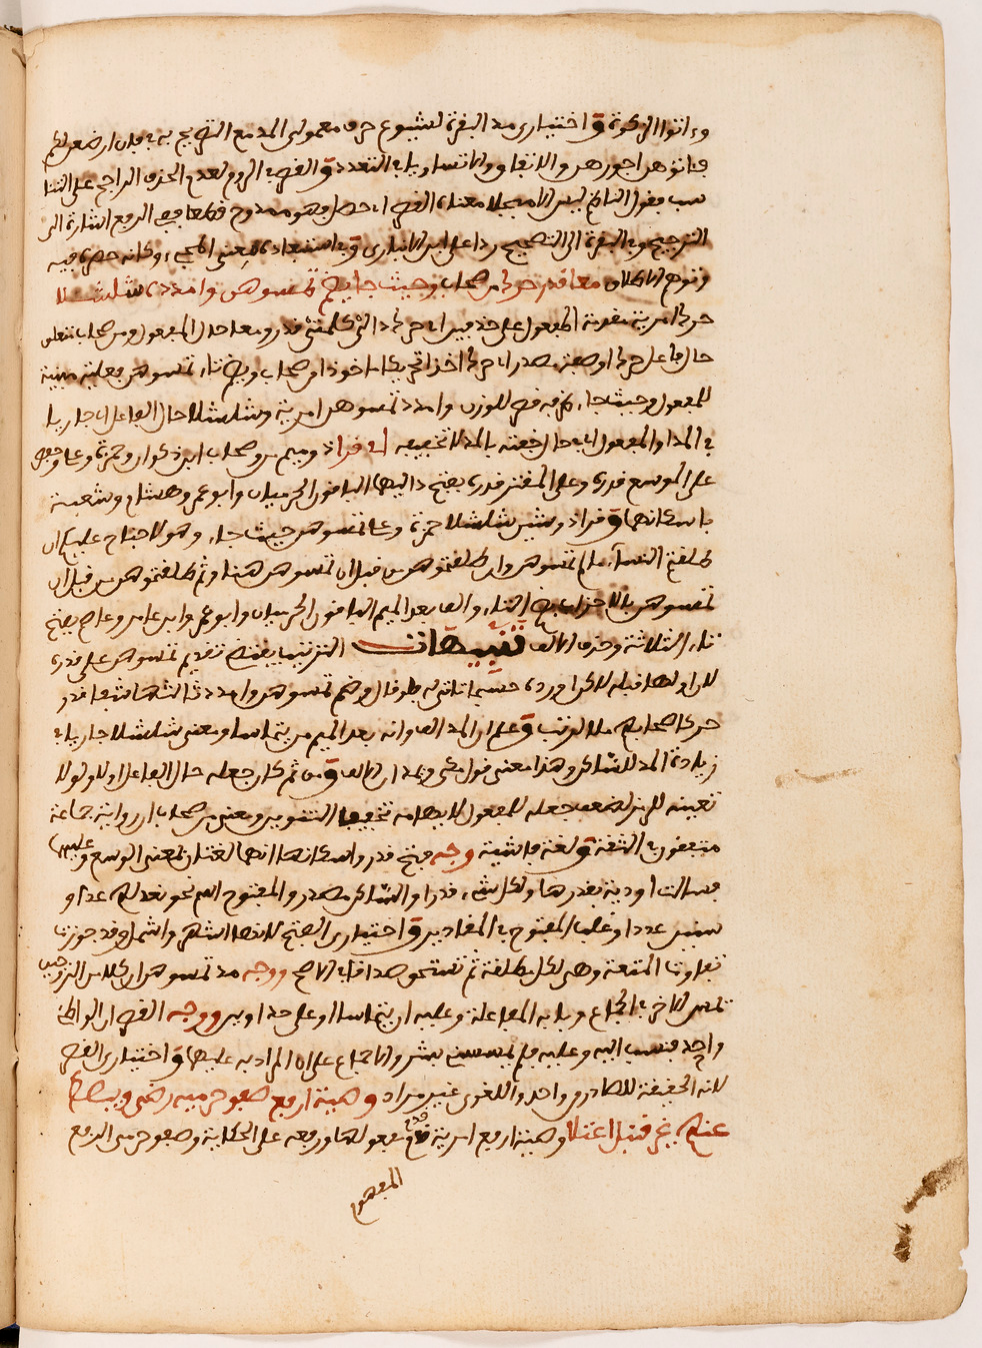 وءاتوا الزكوة وٓ اختيارى مد البقرة لشيوع حرف معمولى المد مع التصريح به فى فان ارضعن لكم
فئاتوهن اجورهن والاتفاق والاتساو يا التعدد وٓ القصر الروم لعدم الحذف الراجح على
سب بقول الناظم ليس الا مبجلا معناه القصر اى حصل وهو ممدوح فى الرفع اشارة الى
الترجيح وبالبقرة الى التصحيح ردا على ابن الانبارى وٓ استبعاده لمعنى المجىء وكانه حصره فيه
وتوهم الاطلاق معا قدر حرك من صحاب وحيث جا يضم تمسوهن وامدده شلشلا
حرك امرية مقدمة المفعول على حذ اى حرك دالى كلمتى قدر ومعا حال المفعول ومن صحاب متعلق
حال فاعل حرك او صفة مصدر اى حرك اخذا تحريكا ماخوذا من صحاب ويضم تاء تمسوهن فعلية مبنية
للمفعول وحيث جاء ظرفه قصر للوزن وامدد تمسوهن امرية وشلشلا حال الفاعل اى جاريا
فى المد او المفعول اى حال خفته بالمد لا تخفيفه اى قراذ وميم من وصحاب ابن ذكوان وحمزة وعلى وحفص
على الموسع قدره وعلى المقتر قدره بفتح داليهما الباقون الحرميان وابو عمرو وهشام وشعبة
باسكانهما وٓ قراذ وشين شلشلا حمزة وعلى تمسوهن حيث جاء وهو لا جناح عليكم ان
طلقتم النساء ما لم تمسوهن وان طلقتموهن من قبل ان تمسوهن هنا وثم طلقتموهن من قبل ان
تمسوهن بالاحزاب بضم التاء والف بعد الميم الباقون الحرميان وابو عمرو وابن عامر وعاصم بفتح
تاء الثلاثة وحذف الالف تنبيهات الترتيب يقتضى تقديم تمسوهن على قدره
للاولها قبله للاكرا ورده حسبما تاتى له فلو قال وضم تمسوهن وامدد ثالثها شفا قدر
حركا صحابهم ملا لرتب وٓ علم ان المد الف وانه بعد الميم من تماسا ومعنى شلشلا جاريا
زيادة المد للساكن وهذا معنى قول مكى وتمد ان الالف وٓ من ثم كان جعله حال الفاعل اولى ولولا
تعينه للرمز لضعف جعله للمفعول لايهامه تخفيف التشوير ومعنى من صحاب ان رواية جماعة
متبعون الثقة وٓ لغة فاشية وجه فتح قدر واسكانها انهما لغتان لمعنى الوسع وعليهما
فسالت اودية بقدرها ولكل شىء قدرا والساكن مصدر والمفتوح اسم نحو نعد لهم عدا و
سنين عددا وغلب المفتوح فى المقادير وٓ اختيارى الفتح لانها اشهر واشمل وقد جوزت
تفاوت المتعة وهى لكل مطلقة لم تستحق صداقا فى الاصح ووجه مد تمسوهن ان كلا من الزوجين
تمس الاخر فى الجماع وبابه المفاعلة وعليه ان يتماسا وعلى حد اوير ووجه القصر ان الواطئ
واحد فنسب اليه وعليه ولم يمسسنى بشر والاجماع على ان المراد به عليهما وٓ اختيارى القصر
لانه الحقيقة للصادر من واحد واللغوى غير مراد وصية ارفع صفو حرميه رضى ويبصط
عنهم غير قنبل اعتلا وصية ارفع امرية قدم مفعولها ورفعه على الحكاية وصفو حرمى الرفع
المفهوم